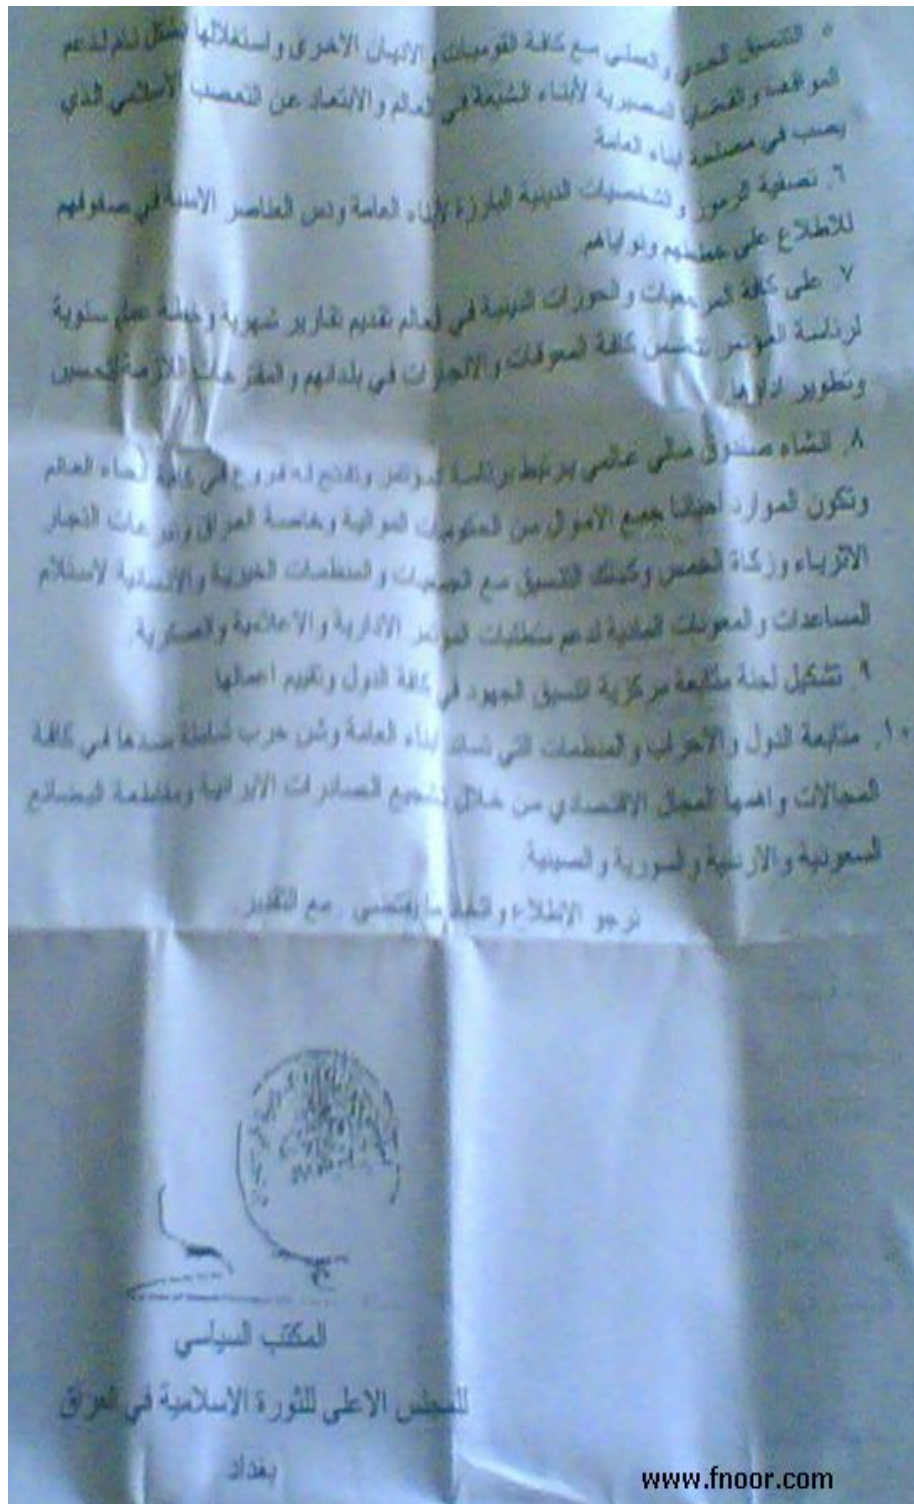 ٥. التنسيق الجدي والعملي مع كافة القوميات والاديان الاخرى واستغلالها بشكل تام لدعم
المواقف والقضايا المصيرية لأبناء الشيعة في العالم والابتعاد عن التعصب الاسلامي الذي
يصب في مصلحة ابناء العامة
٦. تصفية الرموز والشخصيات الدينية البارزة لأبناء العامة ودس العناصر الامنية في صفوفهم
للاطلاع على خططهم ونواياهم
٧. على كافة المرجعيات والحوزات الدينية في العالم تقديم تقارير شهرية وخطة عمل سنوية
لرئاسة المؤتمر تتضمن كافة المعوقات والانجازات في بلدانهم والمقترحات اللازمة لتحسين
وتطوير اداؤها
٨. انشاء صندوق مالي عالمي يرتبط برئاسة المؤتمر وتفتح له فروع في كافة انحاء العالم
وتكون الموارد احيانا جمع الاموال من الحكومات الموالية وخاصة العراق وتبرعات التجار
الاثرياء وزكاة الخمس وكذلك التنسيق مع الجمعيات والمنظمات الخيرية والانسانية لاستلام
المساعدات والمعونات المادية لدعم متطلبات المؤتمر الادارية والاعلامية والعسكرية.
٩. تشكيل لجنة متابعة مركزية لتنسيق الجهود في كافة الدول وتقييم اعمالها
١٠. متابعة الدول والاحزاب والمنظمات التي تساند ابناء العامة وشن حرب شاملة ضدها في كافة
المجالات واهمها المجال الاقتصادي من خلال تشجيع الصادرات الايرانية ومقاطعة البضائع
السعودية والاردنية والسورية والصينية
نرجو الاطلاع واتخاذ ما يقتضي . مع التقدير
المكتب السياسي
للمجلس الاعلى للثورة الاسلامية في العراق
بغداد
www.fnoor.com